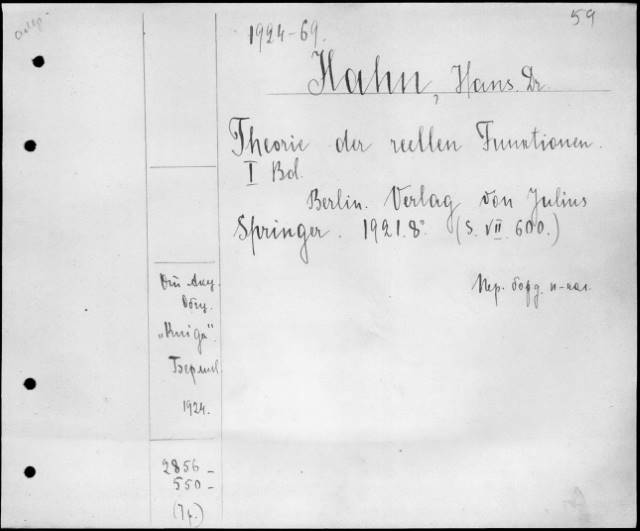 59
1924-69.
Hahn, Hans. Dr.
Theorie der reellen Funktionen.
I Bd.
Berlin. Verlag von Julius
Springer. 1921. 8°. (S. VII. 600.)
Пер.
"Книга".
Берлин.
1924.
2856 -
550 -